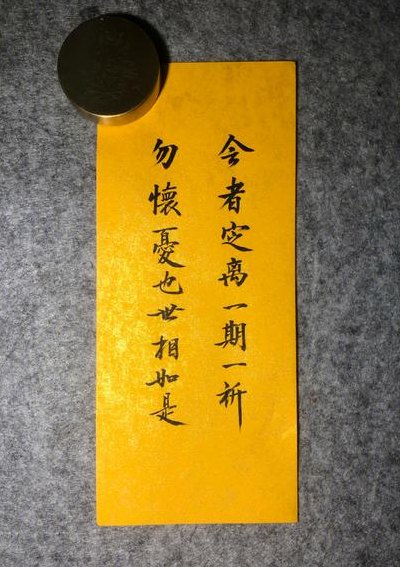 会者定离一期一祈
勿懷憂也世相如是